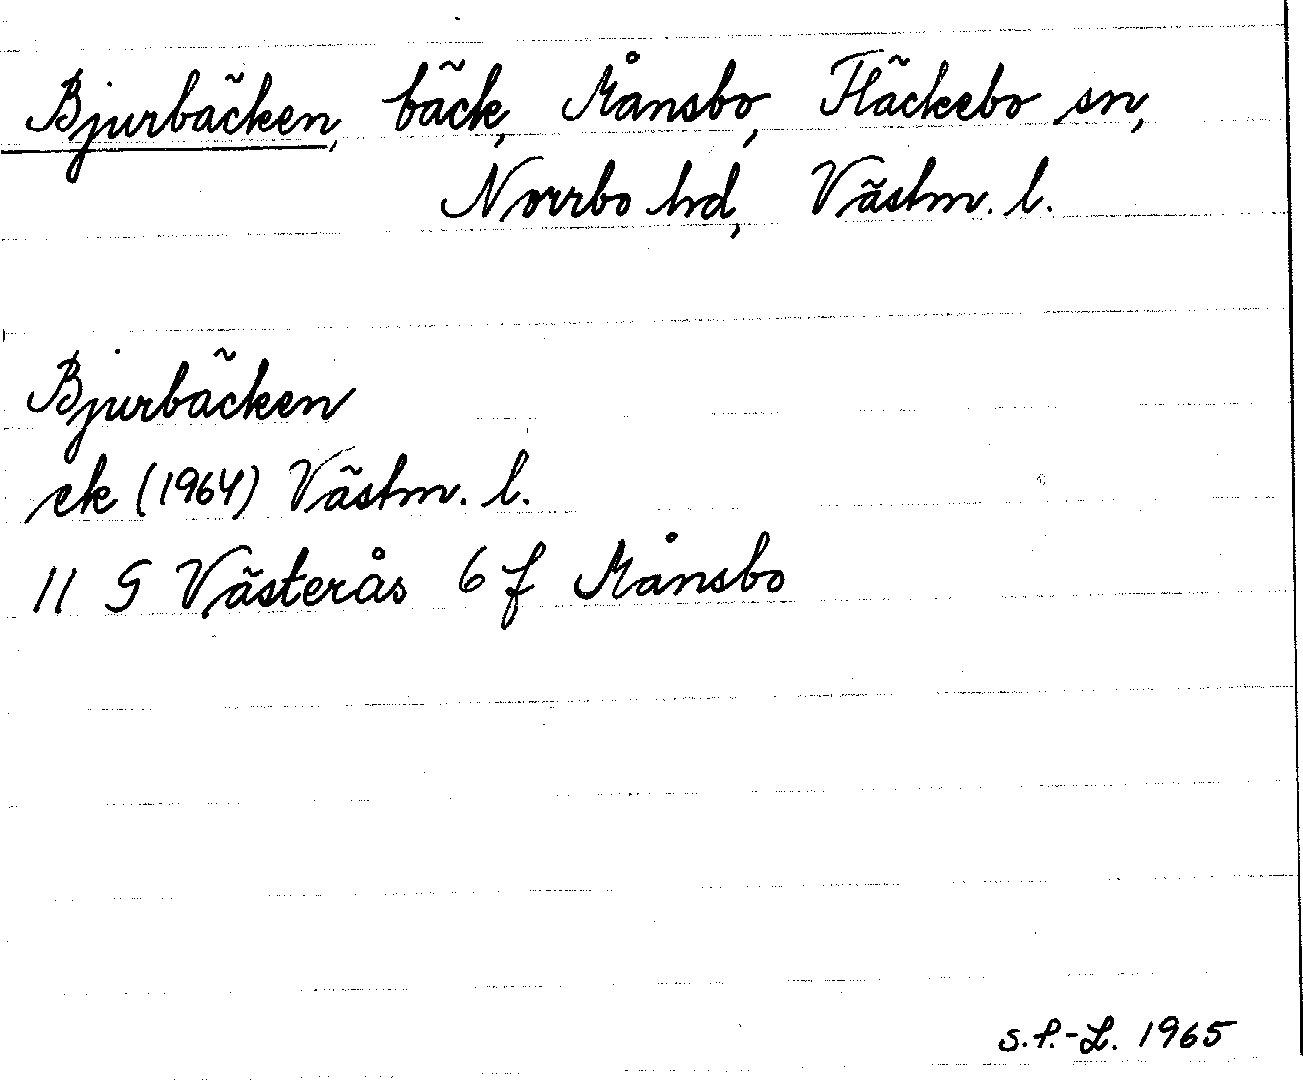 Bjurbäcken, bäck, Månsbo, Fläckebo sn,
Norrbo hd, Västm. l.
Bjurbäcken
ek (1964) Västm. l.
11 G Västerås 6 f Månsbo
S.F.-L. 1965